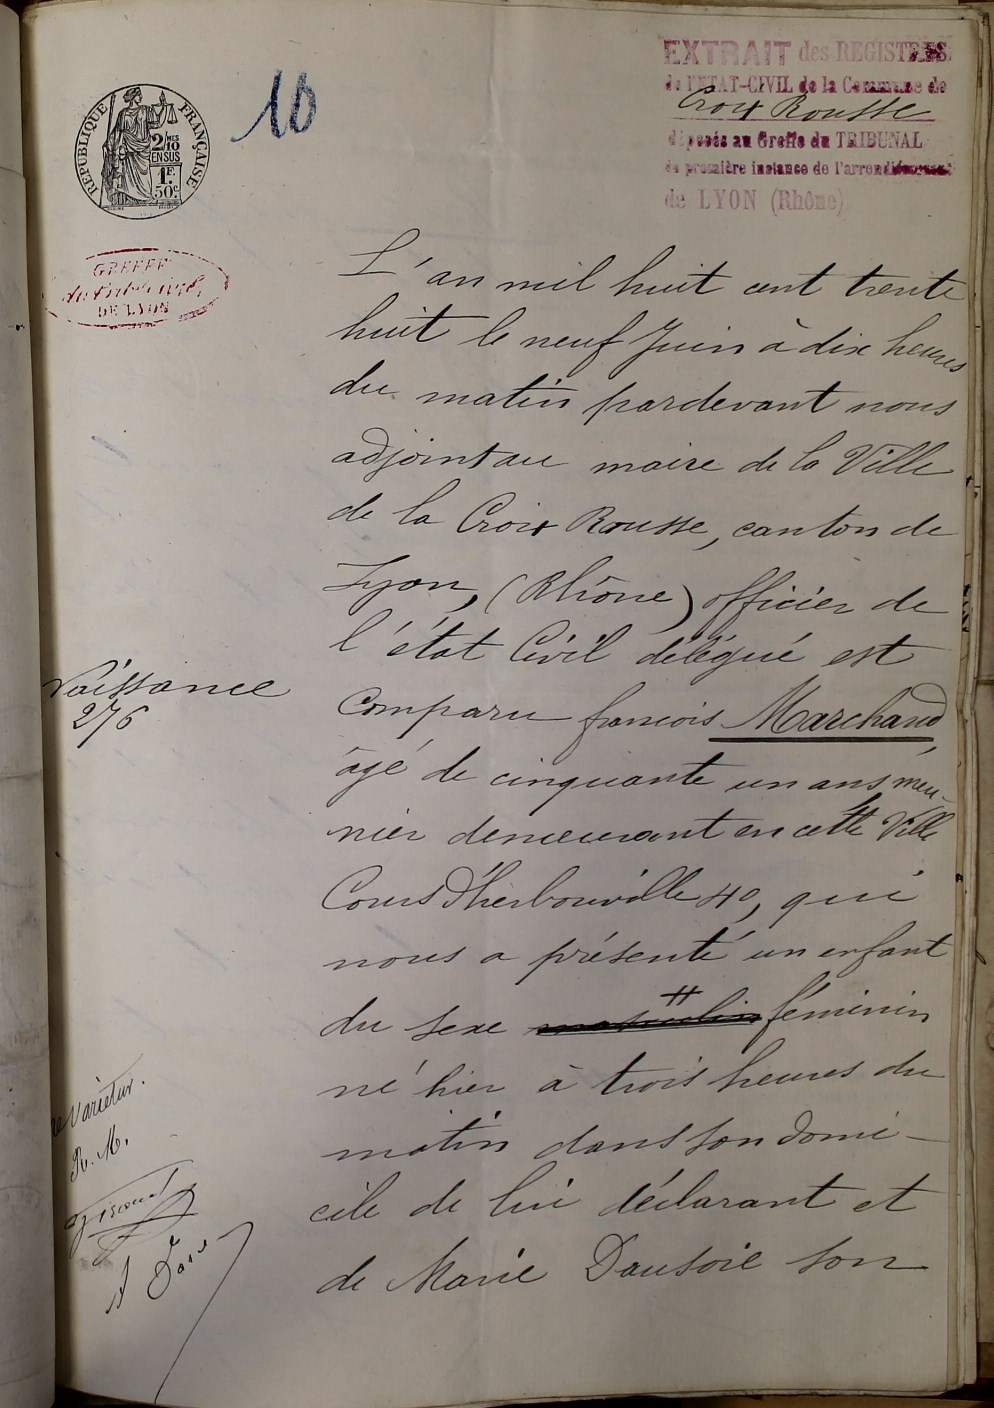 10
RÉPUBLIQUE FRANÇAISE
2/10
EN SUS
1F.
50c.
EXTRAIT des REGISTRES
de l'ETAT-CIVIL de la Commune de
Croix Rousse
déposés au Greffe du TRIBUNAL
de première instance de l'arrondissement
de LYON (Rhône)
GREFFE
DE LYON
L'an mil huit cent trente
huit le neuf Juin à dix heures
du matin pardevant nous
adjoint au maire de la Ville
de la Croix Rousse, canton de
Lyon, (Rhône) officier de
l'état Civil délégué est
Naissance
276
comparu françois Marchand,
âgé de cinquante un ans meu-
nier demeurant en cette Ville
Cours d'herbouville 40, qui
nous a présenté un enfant
du sexe masculin féminin
né hier à trois heures du
matin dans son domi-
cile de lui déclarant et
de Marie Dausoie son
ne Varietur.
R. M.